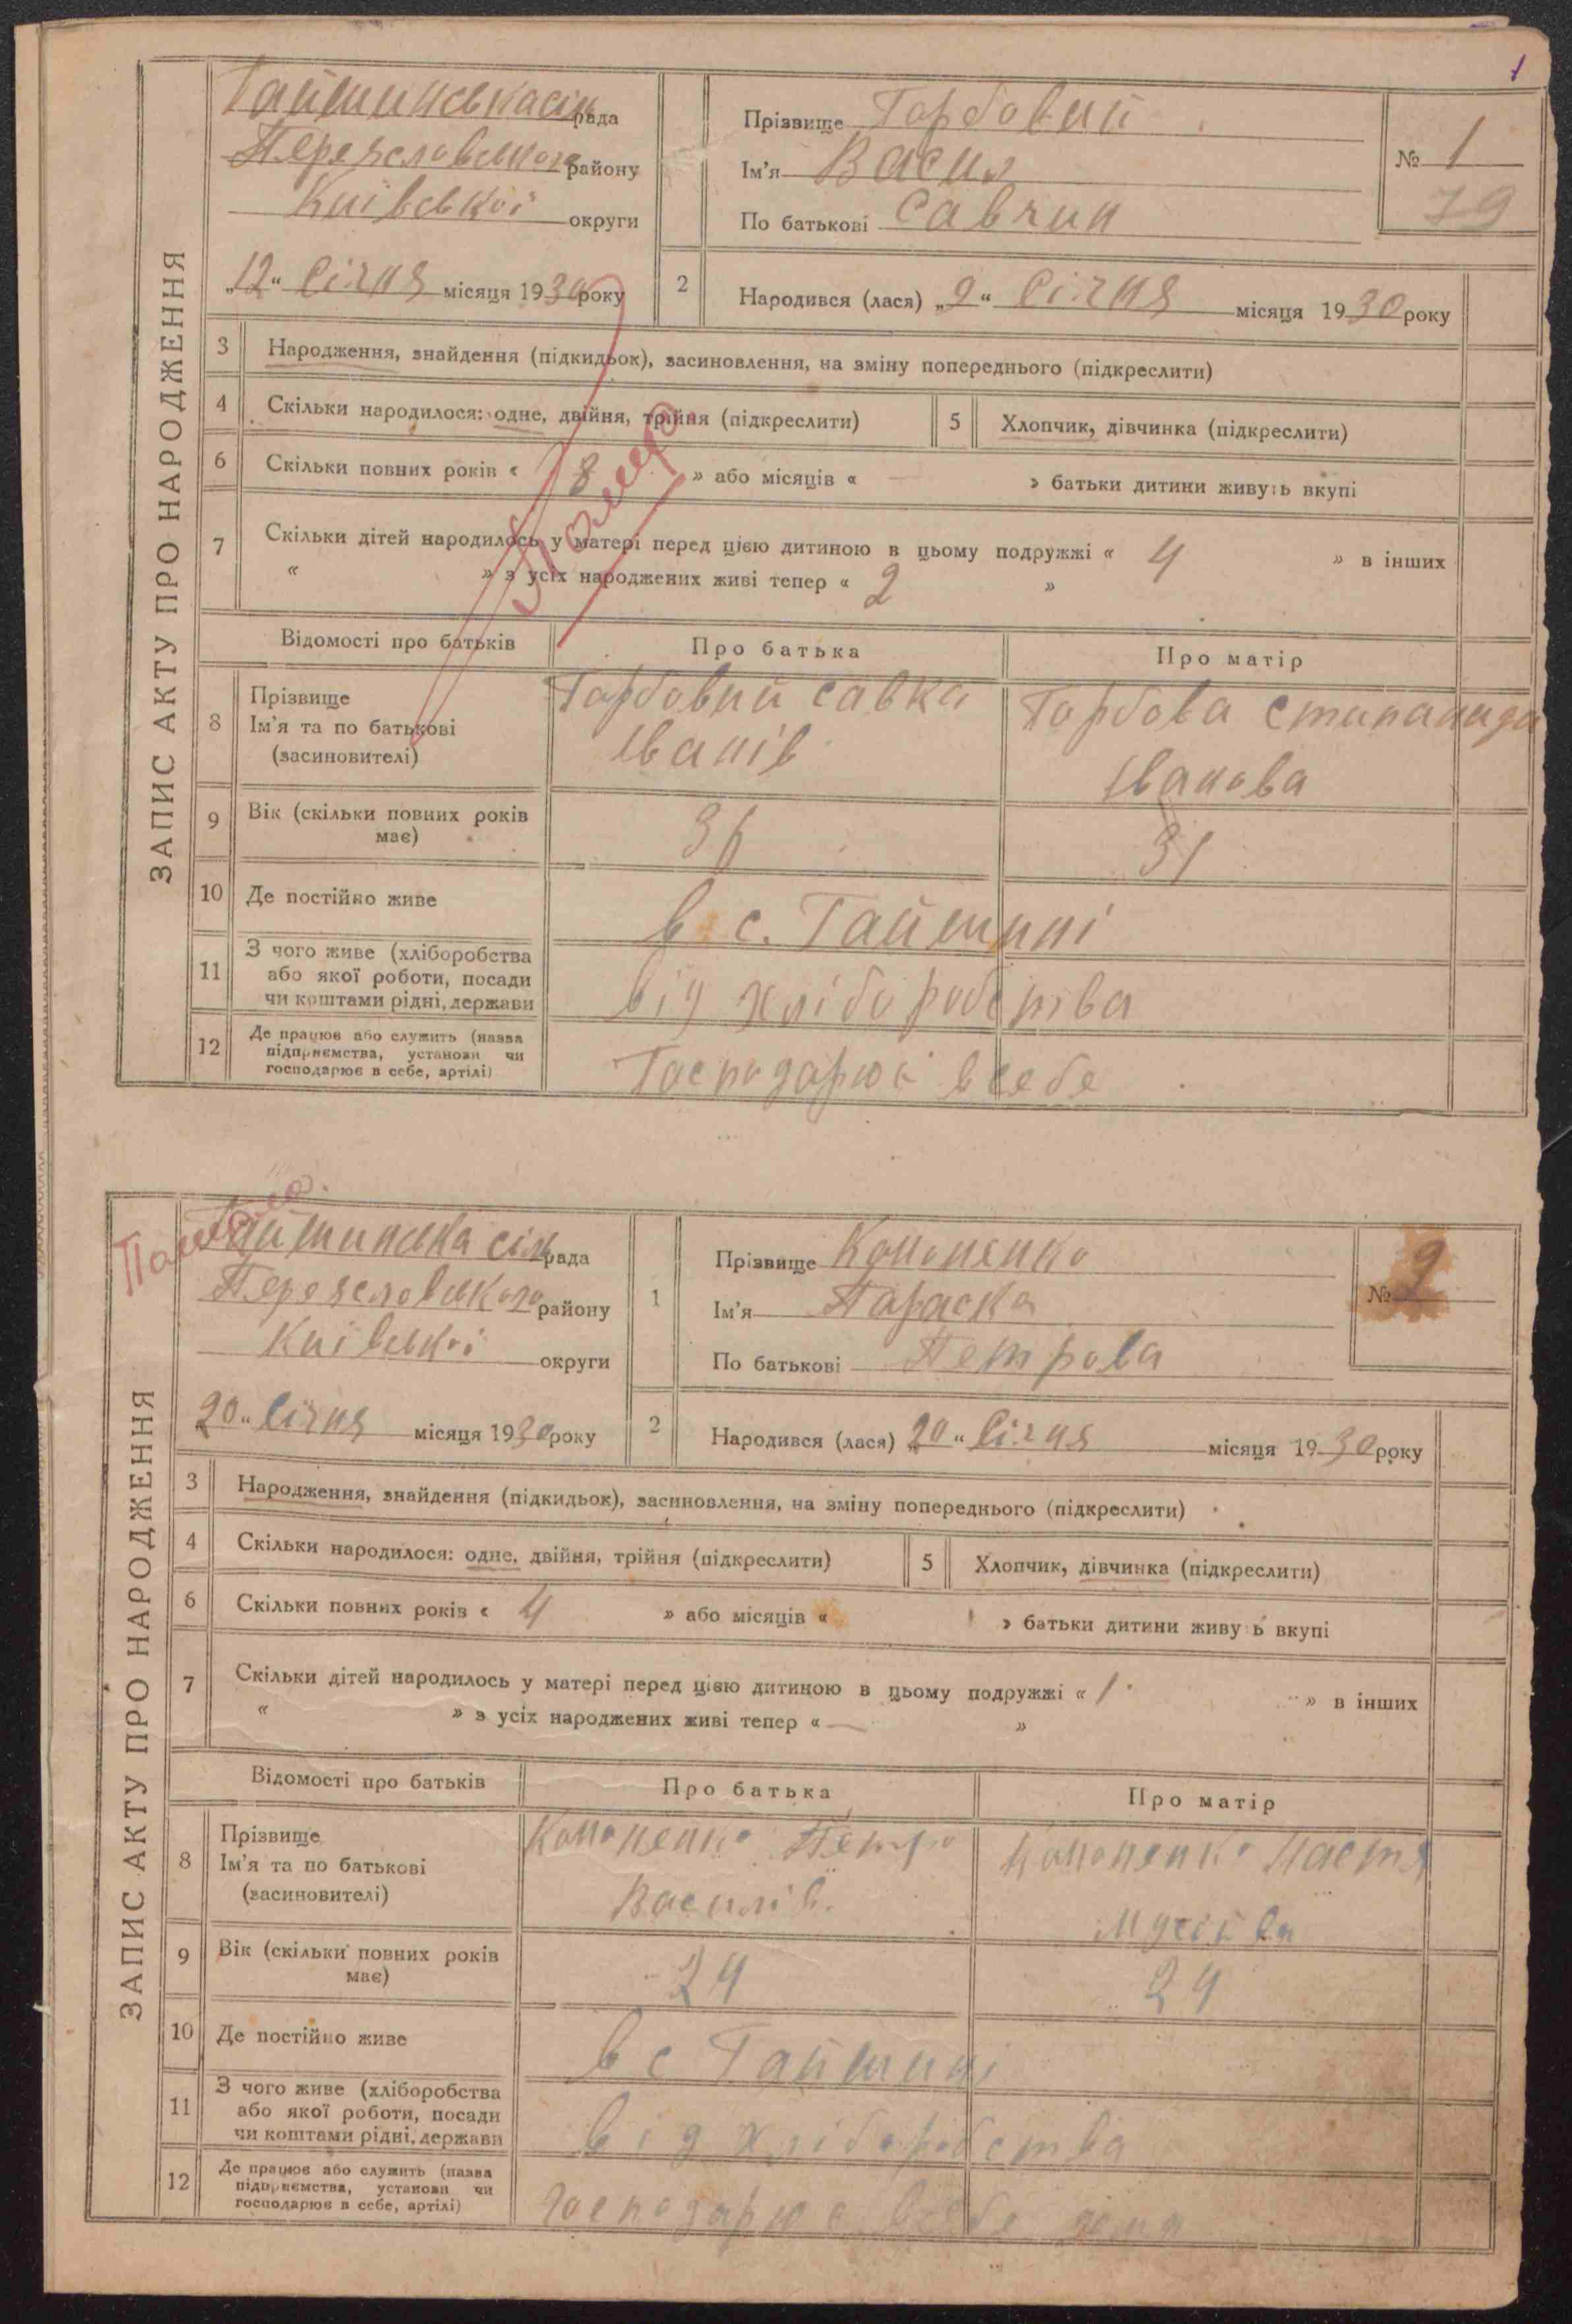 1
ЗАПИС АКТУ ПРО НАРОДЖЕННЯ
Гайшинська сільрада
Переяславського району
Київської округи
„12“ Січня місяця 1930 року
Прізвище Горбовий
Ім'я Васил
По батькові Савчин
№ 1
79
2 Народився (лася) „9“ Січня місяця 1930 року
3 Народження, знайдення (підкидьок), засиновлення, на зміну попереднього (підкреслити)
4 Скільки народилося: одне, двійня, трійня (підкреслити)
5 Хлопчик, дівчинка (підкреслити)
6 Скільки повних років « 8 » або місяців « — » батьки дитини живуть вкупі
7 Скільки дітей народилось у матері перед цією дитиною в цьому подружжі « 4 » в інших
« » з усіх народжених живі тепер « 2 »
Відомості про батьків Про батька Про матір
8 Прізвище Ім'я та по батькові (засиновителі)
Горбовий Савка Іванів
Горбова Степанида Іванова
9 Вік (скільки повних років має) 36 31
10 Де постійно живе в с. Гайшині
11 З чого живе (хліборобства або якої роботи, посади чи коштами рідні, держави від хліборобства
12 Де працює або служить (назва підприємства, установи чи господарює в себе, артілі) Господарює в себе
ЗАПИС АКТУ ПРО НАРОДЖЕННЯ
Гайшинська сільрада
Переяславського району
Київської округи
20“ Січня місяця 1930 року
1 Прізвище Кононенко
Ім'я Параска
По батькові Петрова
№ 2
2 Народився (лася) „20“ Січня місяця 1930 року
3 Народження, знайдення (підкидьок), засиновлення, на зміну попереднього (підкреслити)
4 Скільки народилося: одне, двійня, трійня (підкреслити)
5 Хлопчик, дівчинка (підкреслити)
6 Скільки повних років « 4 » або місяців « » батьки дитини живуь вкупі
7 Скільки дітей народилось у матері перед цією дитиною в цьому подружжі « 1 » в інших
« » з усіх народжених живі тепер « — »
Відомості про батьків Про батька Про матір
8 Прізвище Ім'я та по батькові (засиновителі)
Кононенко Петро Василів.
Кононенко Настя
9 Вік (скільки повних років має) 24 24
10 Де постійно живе в с Гайшині
11 З чого живе (хліборобства або якої роботи, посади чи коштами рідні, держави від хліборобства
12 Де працює або служить (назва підприємства, установи чи господарює в себе, артілі) Господарює в себе